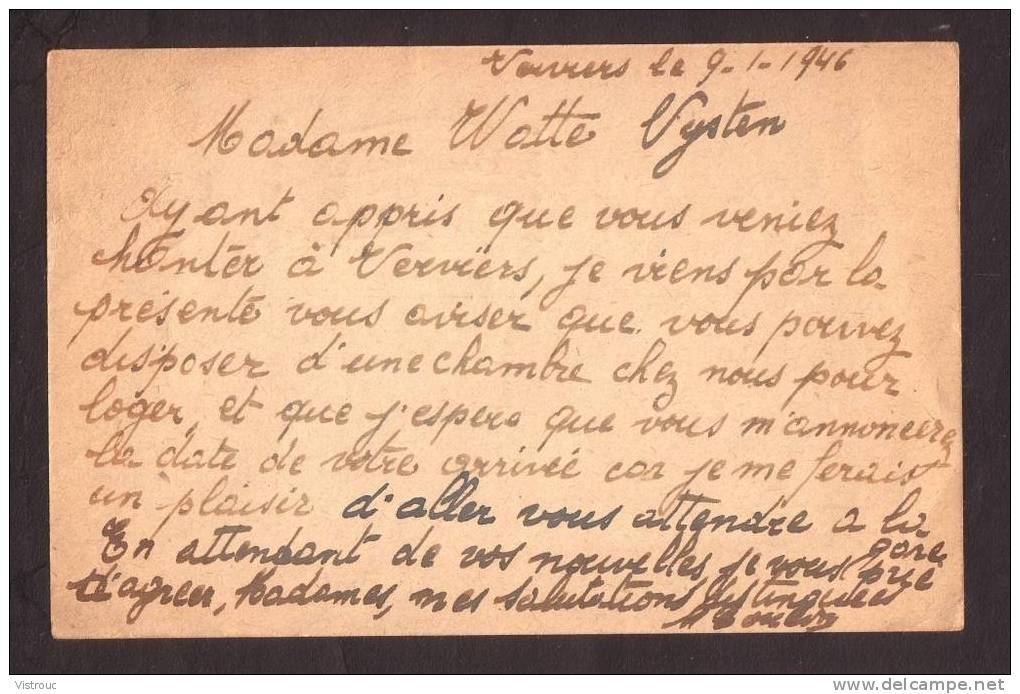 Verviers le 9-1-1946
Madame Watté Vysten
Ayant appris que vous veniez
chanter à Verviers, je viens par la
présente vous aviser que vous pouvez
disposer d'une chambre chez nous pour
loger, et que j'espere que vous m'annoncerez
la date de votre arrivée car je me ferais
un plaisir d'aller vous attendre a la
gare
En attendant de vos nouvelles, je vous prie
d'agreer, Madames, mes salutations distinguées
Vistrouc
delcampe.net